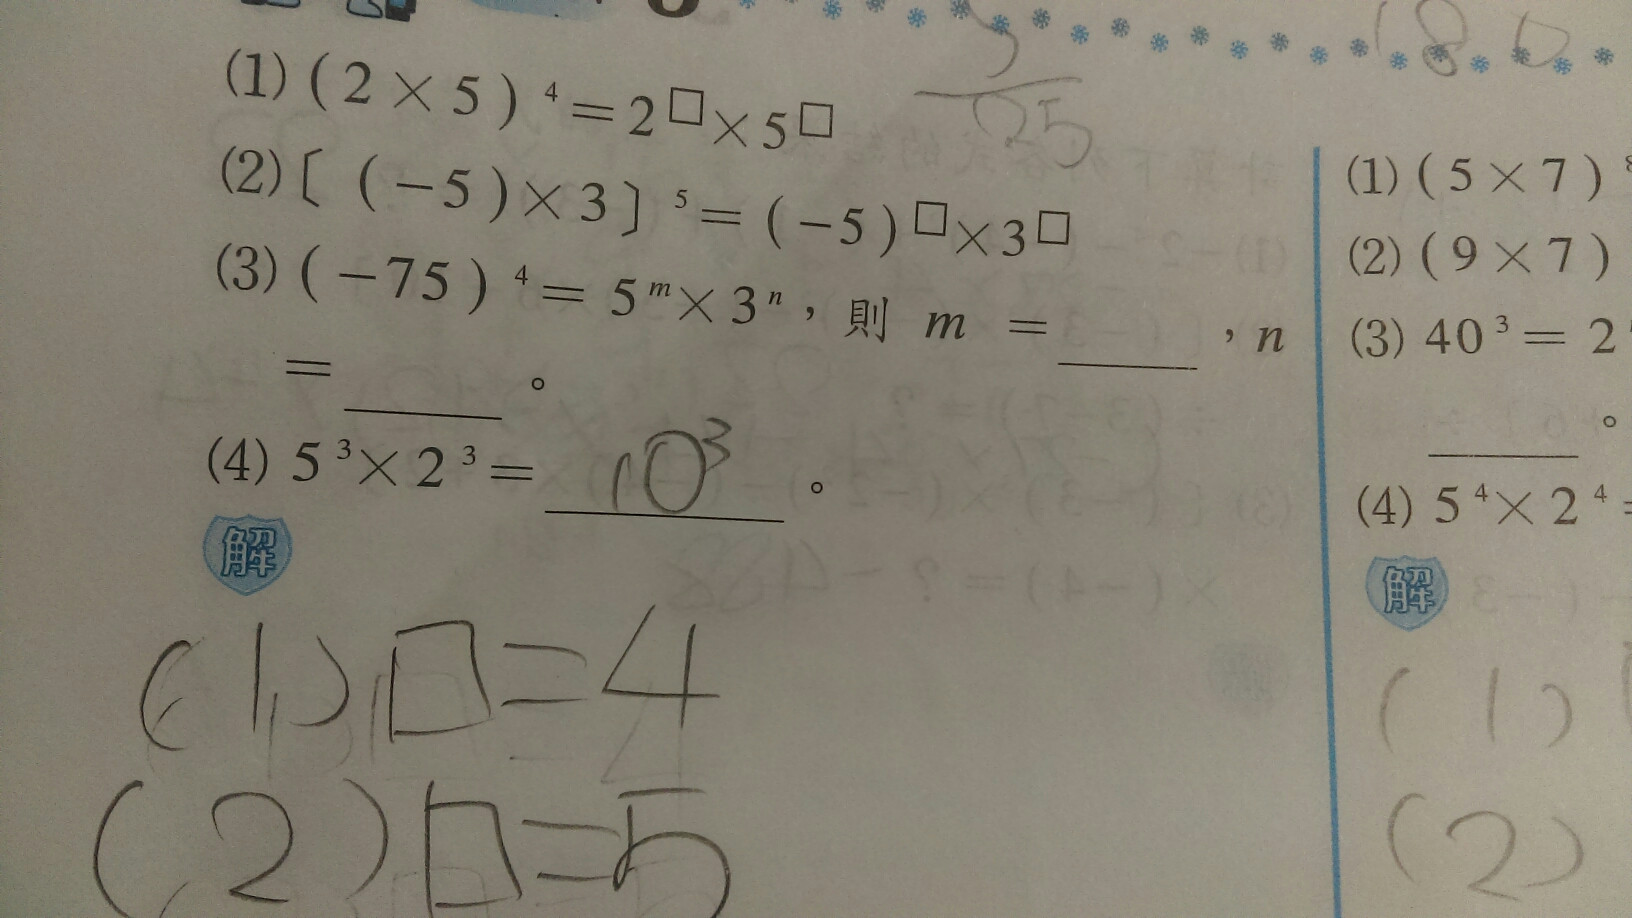 (1) (2×5)⁴=2□×5□
(2)〔(−5)×3〕⁵=(−5)□×3□
(3) (−75)⁴=5ᵐ×3ⁿ，則 m =____，n
=____。
(4) 5³×2³= 10³ 。
解
(1) □=4
(2) □=5
25
180
(1) (5×7)
(2) (9×7)
(3) 40³=2
。
(4) 5⁴×2⁴=
解
(1)
(2)